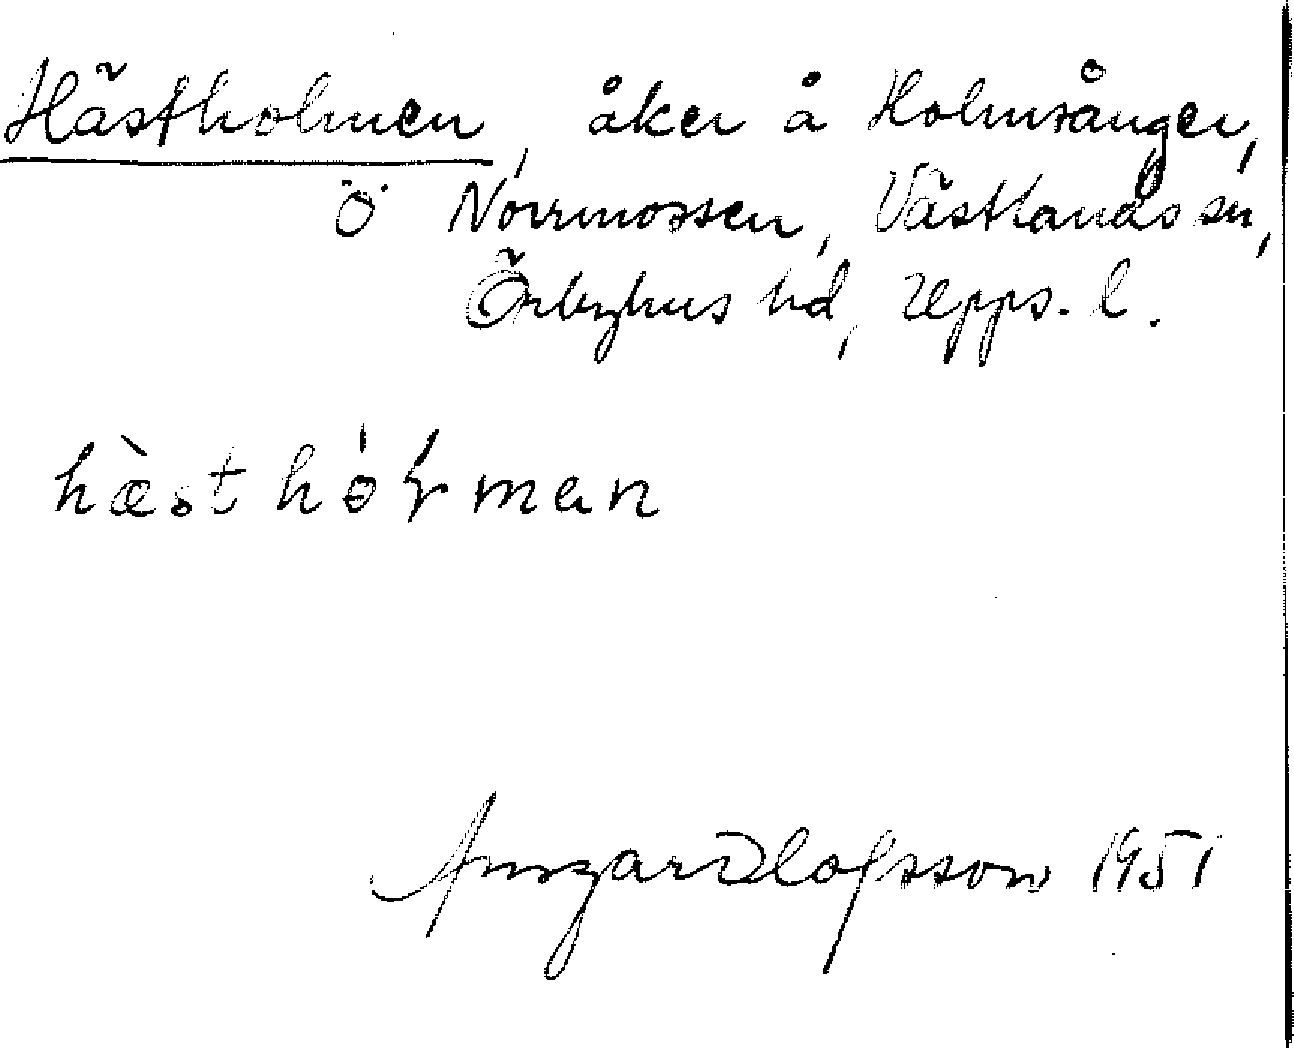 Hästholmen, åker å Holmsånger,
ö Norrmossen, Västlands sn,
Örbyhus hd, Upps. l.
hæst hòɽman
Ansgar Olofsson 1951